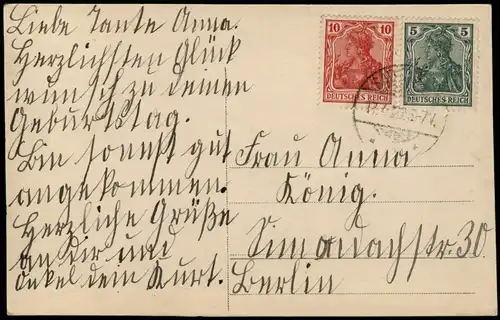 Liebe Tante Anna.
Herzlichsten Glück
wunsch zu deinen
Geburtstag.
Bin sonst gut
angekommen.
Herzliche Grüße
an Dir und
Onkel dein Kurt.
10 10
DEUTSCHES REICH
5 5
DEUTSCHES REICH
Frau Anna
König.
Simon Dachstr. 30
Berlin